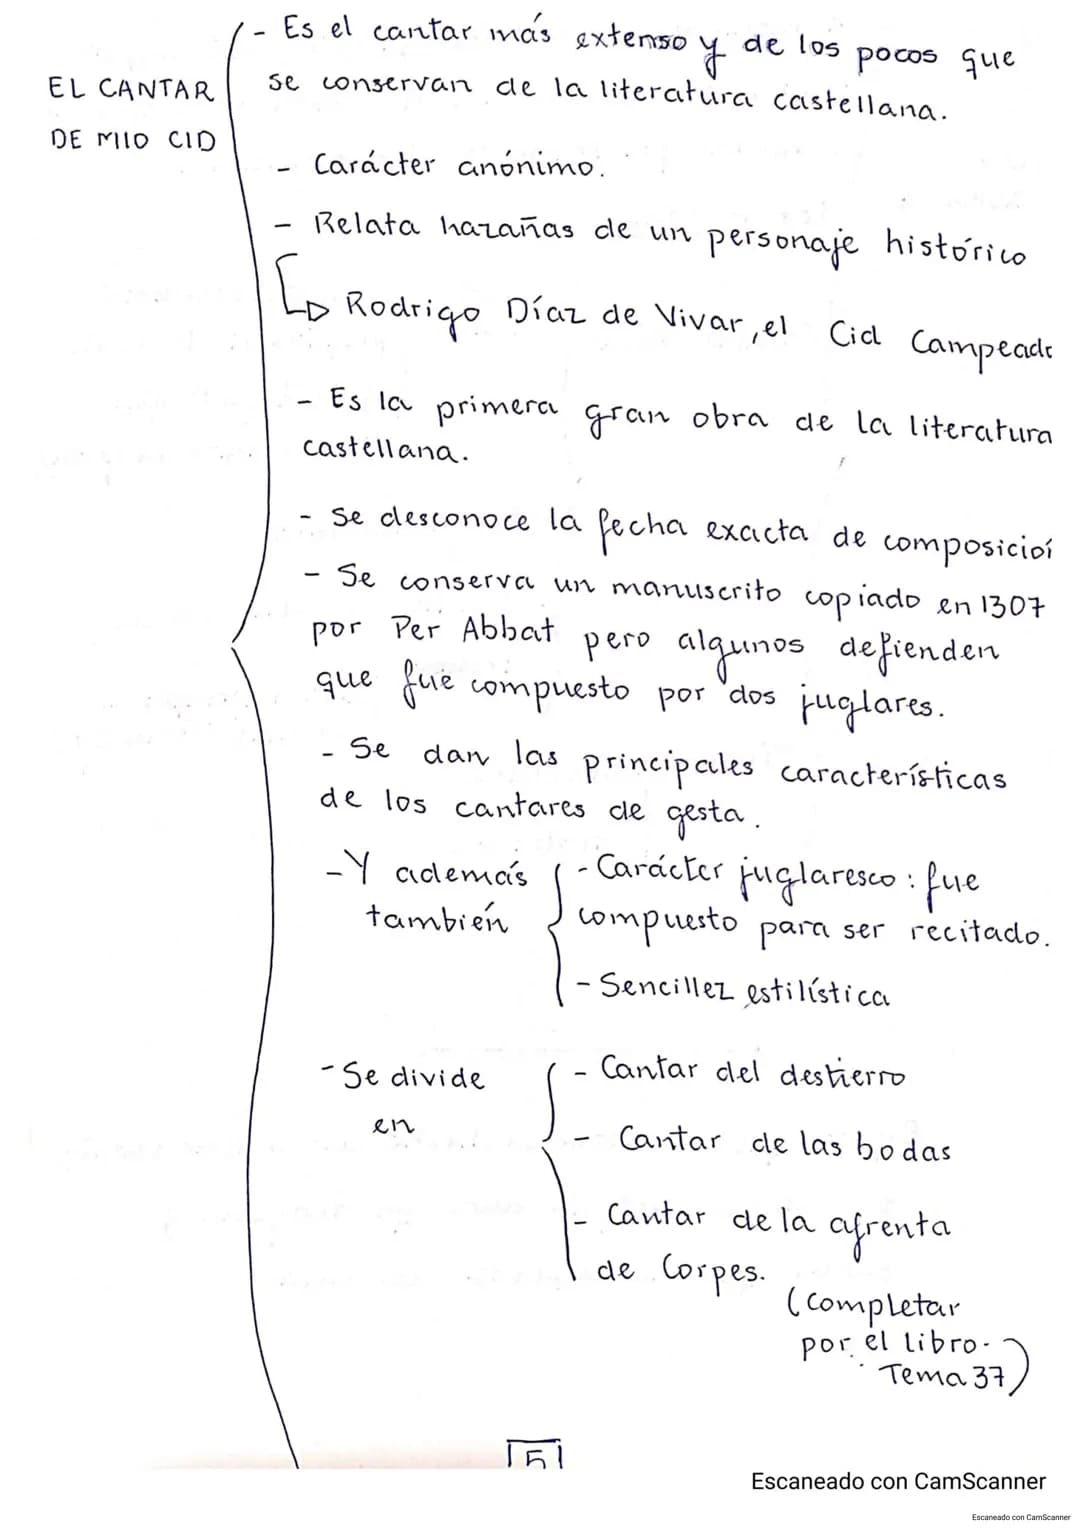 - Es el cantar más extenso y de los pocos que
se conservan de la literatura castellana.
EL CANTAR
DE MIIO CID
- Carácter anónimo.
- Relata hazañas de un personaje histórico
Rodrigo Díaz de Vivar, el Cid Campeado
- Es la primera gran obra de la literatura
castellana.
- Se desconoce la fecha exacta de composició
- Se conserva un manuscrito copiado en 1307
por Per Abbat pero algunos defienden
que fue compuesto por dos juglares.
- Se dan las principales características
de los cantares de gesta.
- Y además
también
- Carácter juglaresco: fue
compuesto para ser recitado.
- Sencillez estilística
- Se divide
en
- Cantar del destierro
- Cantar de las bodas
- Cantar de la afrenta
de Corpes.
(Completar
por el libro.
Tema 37)
5
Escaneado con CamScanner
Escaneado con CamScanner